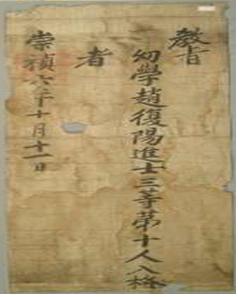 教旨
幼學趙復陽進士三等第十人入格
者
崇禎六年十月十一日